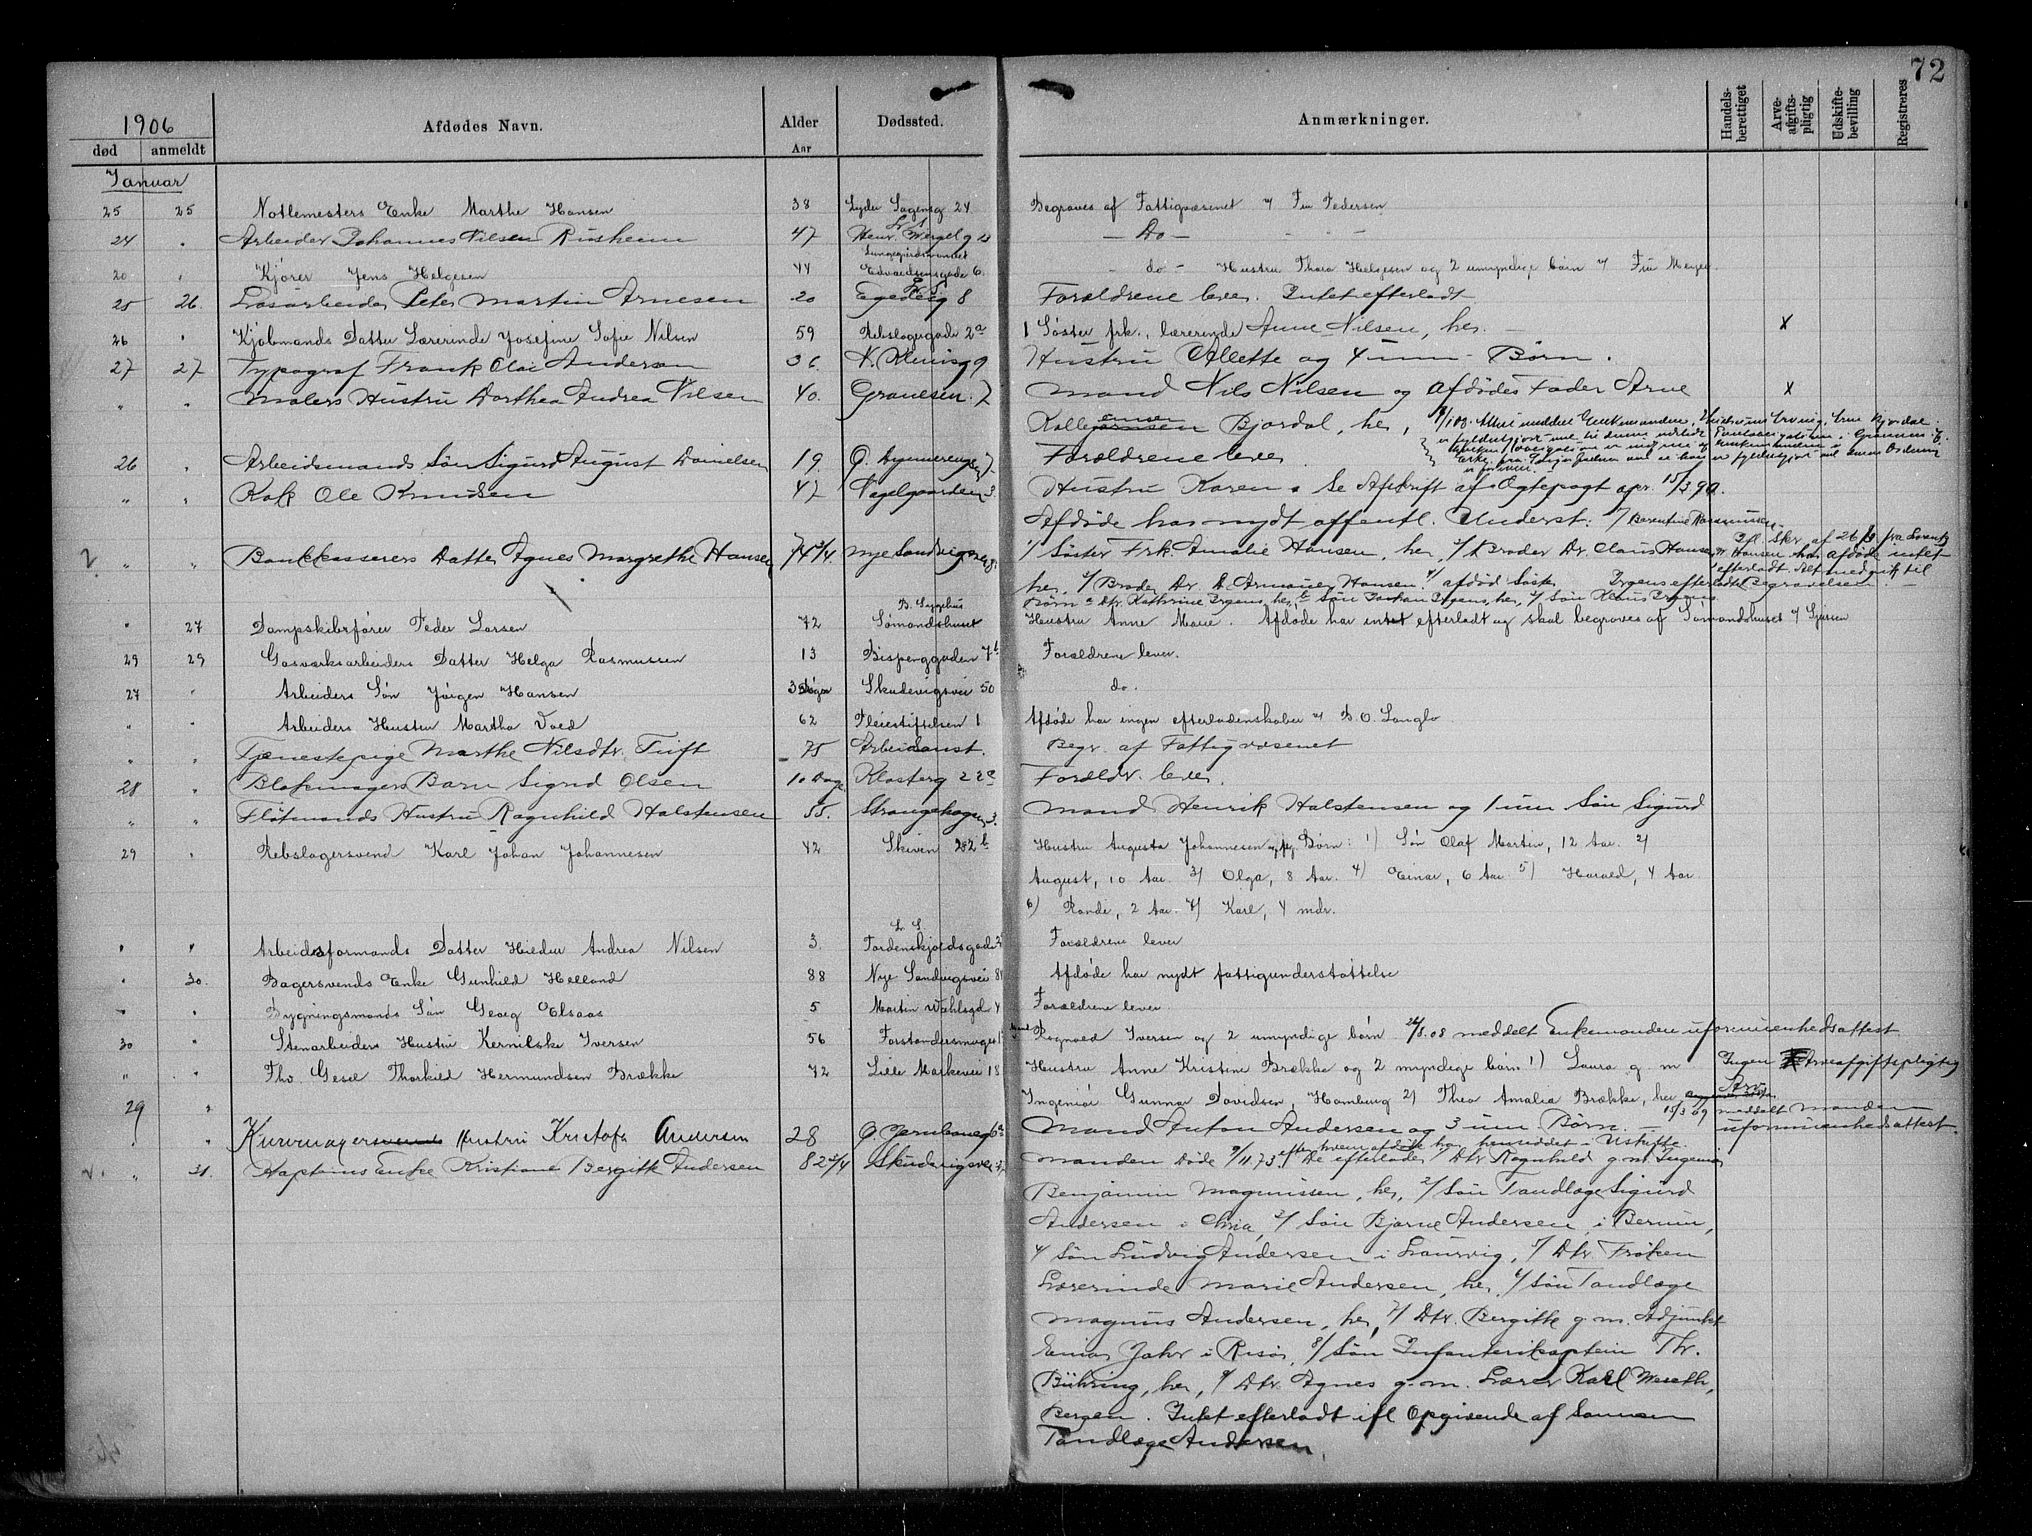 72
1906
død anmeldt Afdødes Navn. Alder Aar Dødssted. Anmærkninger. Handels-berettiget Arve-afgifts-pligtig Udskifte-bevilling Registreres
Januar
25 25 Notlemesters Enke Marthe Hansen 38 Lyder Sagensg 24 Begraves af Fattigvæsenet v/ Fru Pedersen
24 " Arbeider Johannes Nilsen 47 Henr. Wergel g — Do —
20 " Kjører Jens Helgesen 44 Edvardsensgade 6. — do — Hustru Thora Helgesen og 2 umyndige børn v/ Fru Meyer
25 26. Løsarbeider Peter Martin Arnesen 20 Egedesg 8 Forældrene lever. Intet efterladt
26 " Kjøbmands Datter Lærerinde Josefine Sofie Nilsen 59 Rebslagergade 2a 1 Søster frk. lærerinde Anne Nilsen, her. X
27 27 Typograf Frank Olai Anderson 36. Hustru Allette og 4 um. Børn.
" " Malers Hustru Dorthea Andrea Nilsen 40. Grønesen. 7 Mand Nils Nilsen og Afdødes Fader Arne X
Bjordal, her,
26 " Arbeidsmands Søn Sigurd August Danielsen 19. Forældrene lever
" " Kok Ole Knudsen 47 Nagelgaarden 3. Hustru Karen. Se Afskrift af Ægtepagt apr. 15/3 90.
Afdøde har nydt offentl. Underst. v/ Berentine Rasmussen.
" " Bankkasserers Datter Agnes Margrethe Hansen 74 3/4. Nye Sandvigsvei 1/ Søster Frk. Amalie Hansen, her, 2/ Broder Dr. Claus Hansen
her, 3/ Broder Dr. G. Armauer Hansen. 4/ afdød Søster Irgens efterladte
Børn a Dtr. Kathrine Irgens, her, b Søn Johan Irgens, her, c/ Søn Klaus Irgens
" 27 Dampskibsfører Peder Larsen 72 B. Sygehus Sømandshuset Hustru Anne Marie. Afdøde har intet efterladt og skal begraves af Sømandshuset v/ Sjursen
29 29 Gasværksarbeiders Datter Helga Rasmussen 13 Bispenggaden 7b Forældrene lever.
27 " Arbeiders Søn Jørgen Hansen Skudevigsvei 50 do.
" " Arbeiders Hustru Martha Voed 62 Pleiestiftelsen 1 Afdøde har ingen efterladenskaber v/ B. O. Langlo
" " Tjenestepige Marthe Nilsdtr. Tuft 75 Arbeidsanst. Begr. af Fattigvæsenet
28 " Blokmagers Barn Sigrid Olsen 10 Dage Klosterg 22a Forældr. lever.
" " Fløtmands Hustru Ragnhild Halstensen 55. Strangehagen 3. Mand Henrik Halstensen og 1 um Søn Sigurd
29 " Rebslagersvend Karl Johan Johannesen 42 Skiven 22b Hustru Augusta Johannesen og Børn: 1) Søn Olaf Martin, 12 Aar. 2)
August, 10 Aar. 3) Olga, 8 Aar. 4) Einar, 6 Aar 5) Harald, 4 Aar
6) Randi, 2 Aar. 7) Karl, 4 mdr.
" " Arbeidsformands Datter Andrea Nilsen 3. L. S Tordenskjoldsgade Forældrene lever
" 30. Bagersvends Enke Gunhild Helland 88 Nye Sandvigsvei Afdøde har nydt fattigunderstøttelse
" " Bygningsmands Søn Georg Elsaas 5 Martin Vahlsgd 4 Forældrene lever
30 " Stenarbeiders Hustru Iversen 56 Forstandersmuget Mand Rognald Iversen og 2 umyndige børn 26/8.08 meddelt Enkemanden uformuenhedsattest
" " Fhv. Gesel Thorkild Hermundsen Brække 72 Lille Markevei 18 Hustru Anne Kristine Brække og 2 myndige børn 1) Laura g. m Ingen Arveafgiftspligtig
29 " Ingeniør Gunnar Davidsen, Hamburg 2) Thea Amalia Brække, her Arv
" " Kurvmagersvends Hustru Kristofa Andersen 28 Mand Anton Andersen og 3 um Børn. — 15/3 09 meddelt Manden uformuenhedsattest.
" 31. Kapteins Enke Kristiane Bergitte Andersen 82 3/4 Skudevigsvei Manden Døde 9/11.73. efter hvem afdøde har hensiddet i Uskifte. De efterlader 1/ Dtr. Ragnhild g. m. Ingeniør
Benjamin Magnussen, her, 2/ Søn Tandlæge Sigurd
Andersen i Chria, 3/ Søn Bjarne Andersen, i Berum,
4 Søn Ludvig Andersen i Laurvig, 5/ Dtr. Frøken
Lærerinde Marie Andersen, her, 6/ Søn Tandlæge
Magnus Andersen, her, 7/ Dtr. Bergitte g. m. Adjunkt
Einar Jahr i Risør, 8/ Søn Infanterikaptein Th.
Bühring, her, 9 Dtr. Agnes g. m. Lærer Karl Weseth,
Bergen. Intet efterladt ifl Opgivende af Sønnen
Tandlæge Andersen.